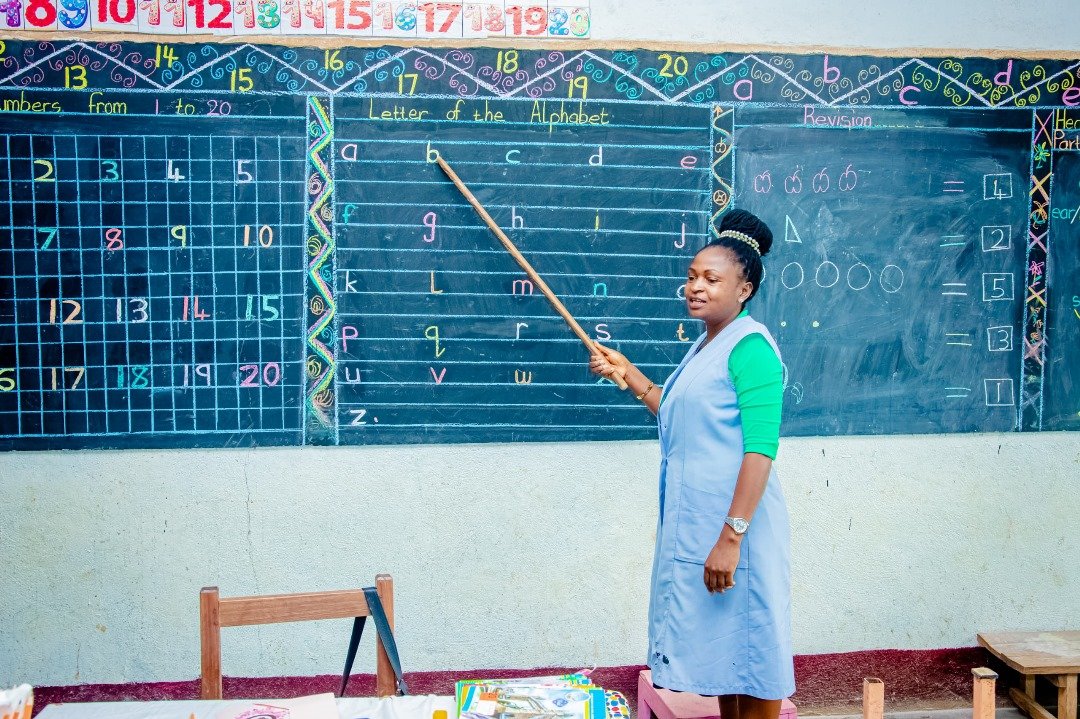 8 9 10 11 12 13 14 15 16 17 18 19 20
13 14 15 16 17 18 19 20 a b c d e
from 1 to 20
2 3 4 5
7 8 9 10
12 13 14 15
6 17 18 19 20
Letter of the Alphabet
a b c d e
f g h i j
k L m n
p q r s t
u v w
z.
Revision
= 4
= 2
= 5
= 3
= 1